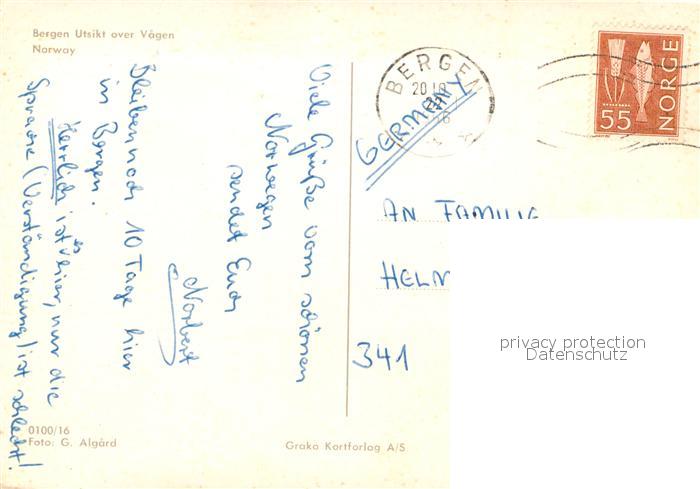 Bergen Utsikt over Vågen
Norway
Viele Grüße vom schönen
Norwegen
sendet Euch
Norbert
Bleiben noch 10 Tage hier
in Bergen.
Herrlich ist es hier, nur die
Sprache (Verständigung) ist schlecht!
0100/16
Foto: G. Algård
Grako Kortforlag A/S
BERGEN
20 10
GERMANY
NORGE
55
AN FAMILIE
HELM
341
privacy protection
Datenschutz